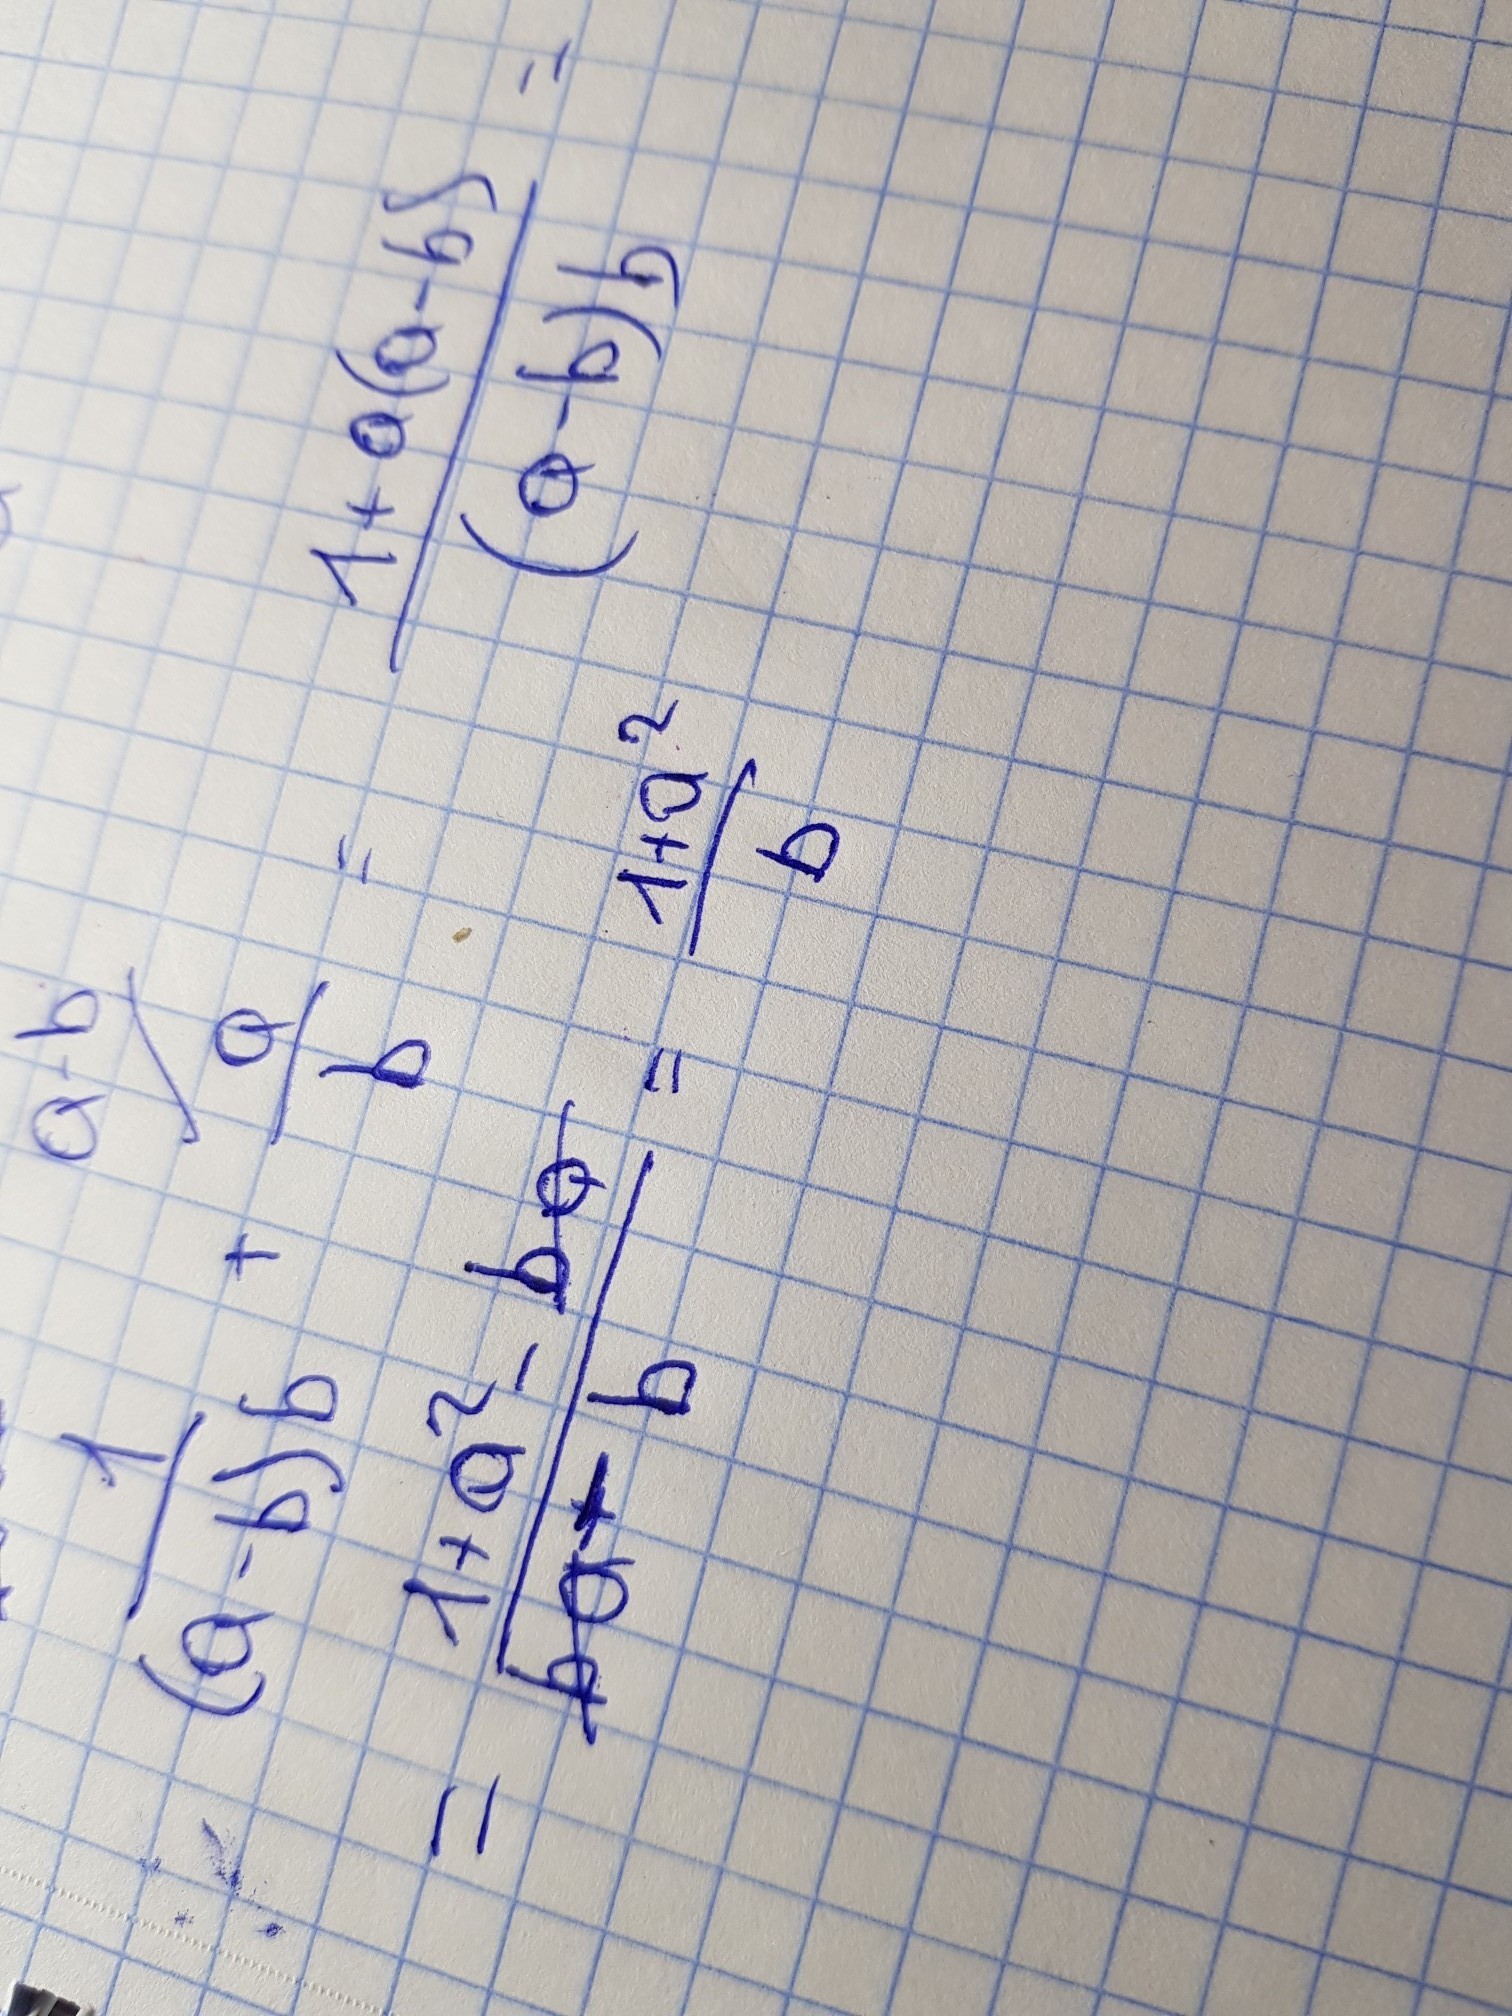 a-b
1/((a-b)b) + a/b = (1+a(a-b))/((a-b)b) =
= (1+a²-ba)/(ba-b) = (1+a²)/b